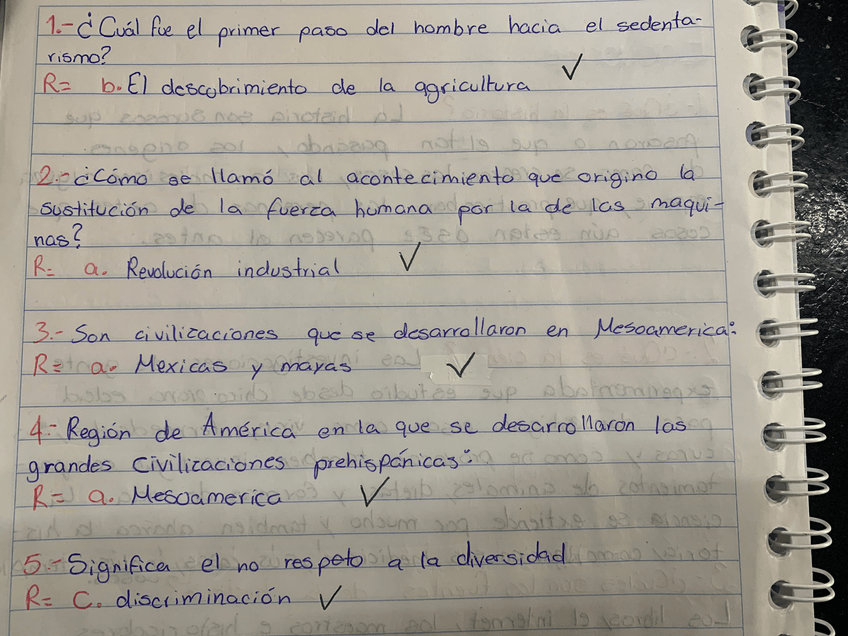 1.- ¿Cuál fue el primer paso del hombre hacia el sedenta-
rismo?
R= b. El descubrimiento de la agricultura
2.- ¿Cómo se llamó al acontecimiento que origino la
sustitución de la fuerza humana por la de las maqui-
nas?
R= a. Revolución industrial
3.- Son civilizaciones que se desarrollaron en Mesoamerica:
R= a. Mexicas y mayas
4.- Región de América en la que se desarrollaron las
grandes Civilizaciones prehispánicas:
R= a. Mesoamerica
5.- Significa el no respeto a la diversidad
R= C. discriminación